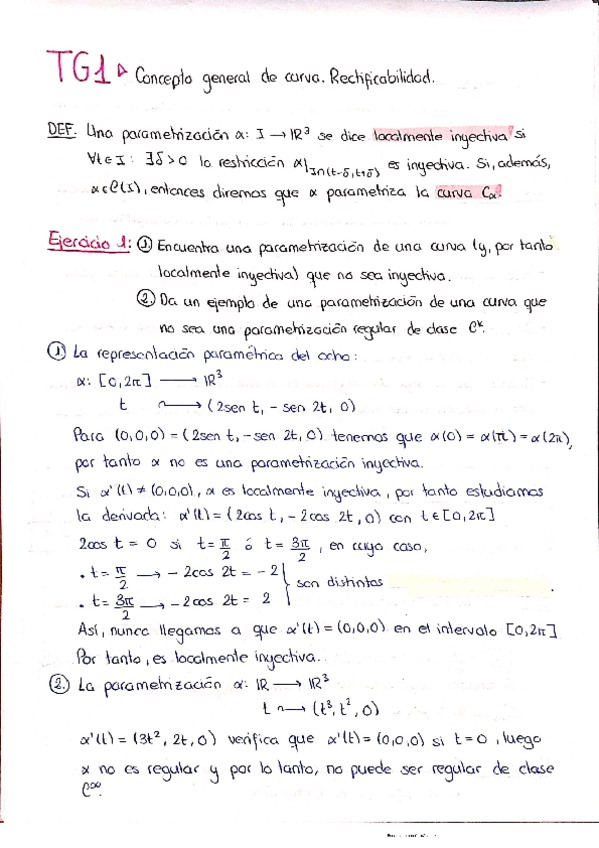 TG1 ▷ Concepto general de curva. Rectificabilidad.
DEF. Una parametrización α: I → IR³ se dice localmente inyectiva si
∀t∈I: ∃δ>0 la restricción α|I∩(t-δ,t+δ) es inyectiva. Si, además,
α∈C(I), entonces diremos que α parametriza la curva Cα.
Ejercicio 1: ① Encuentra una parametrización de una curva (y, por tanto
localmente inyectiva) que no sea inyectiva.
② Da un ejemplo de una parametrización de una curva que
no sea una parametrización regular de clase Cᵏ.
① La representación paramétrica del ocho:
α: [0,2π] → IR³
t ⟿ (2sen t, - sen 2t, 0)
Para (0,0,0) = (2sen t, -sen 2t, 0) tenemos que α(0) = α(π) = α(2π),
por tanto α no es una parametrización inyectiva.
Si α'(t) ≠ (0,0,0), α es localmente inyectiva, por tanto estudiamos
la derivada: α'(t) = (2cos t, -2cos 2t, 0) con t∈[0,2π]
2cos t = 0 si t = π/2 ó t = 3π/2, en cuyo caso,
• t = π/2 → -2cos 2t = -2
son distintos
• t = 3π/2 → -2cos 2t = 2
Así, nunca llegamos a que α'(t) = (0,0,0) en el intervalo [0,2π]
Por tanto, es localmente inyectiva.
②. La parametrización α: IR → IR³
t ⟿ (t³, t², 0)
α'(t) = (3t², 2t, 0) verifica que α'(t) = (0,0,0) si t=0, luego
α no es regular y por lo tanto, no puede ser regular de clase
C∞.